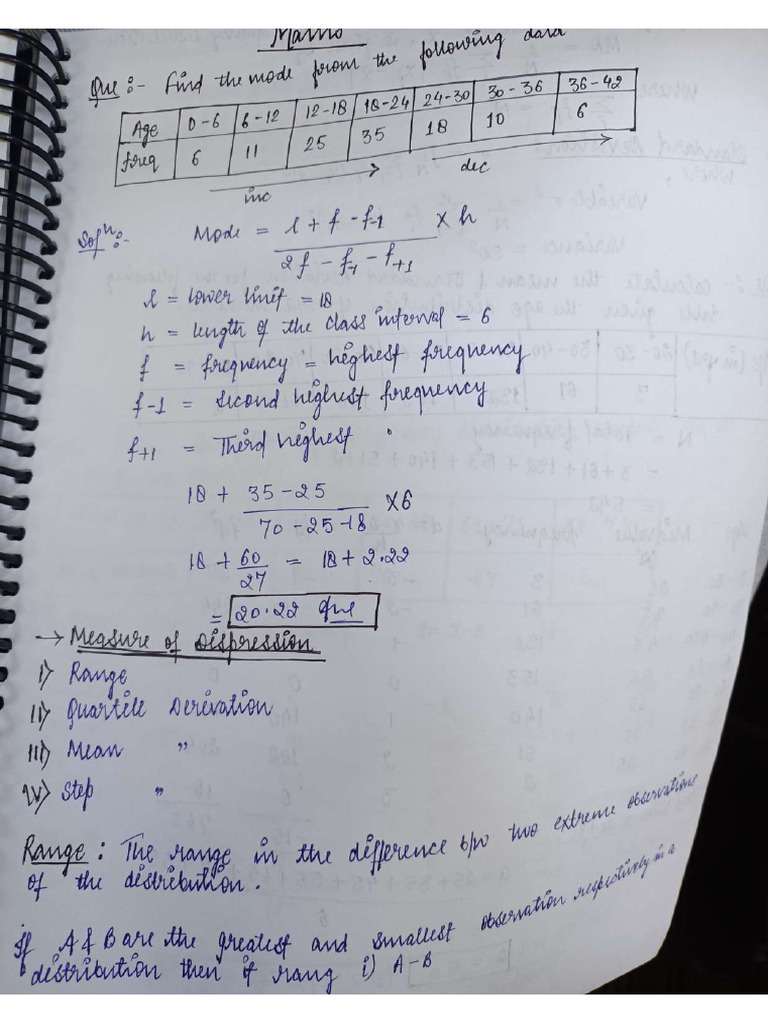 Maths
Que :- Find the mode from the following data
Age 0-6 6-12 12-18 18-24 24-30 30-36 36-42
freq 6 11 25 35 18 10 6
inc dec
Solⁿ:- Mode = l + f - f-1 / 2f - f-1 - f+1 × h
l = lower limit = 18
h = length of the class interval = 6
f = frequency = highest frequency
f-1 = second highest frequency
f+1 = Third highest "
18 + 35-25 / 70-25-18 × 6
18 + 60/27 = 18 + 2.22
= 20.22 Que
→ Measure of Dispression
i) Range
ii) Quartile Derivation
iii) Mean "
iv) Step "
Range : The range in the difference b/w two extreme observations
of the distribution.
If A & B are the greatest and smallest observation respectively in a
distribution then if rang i) A-B